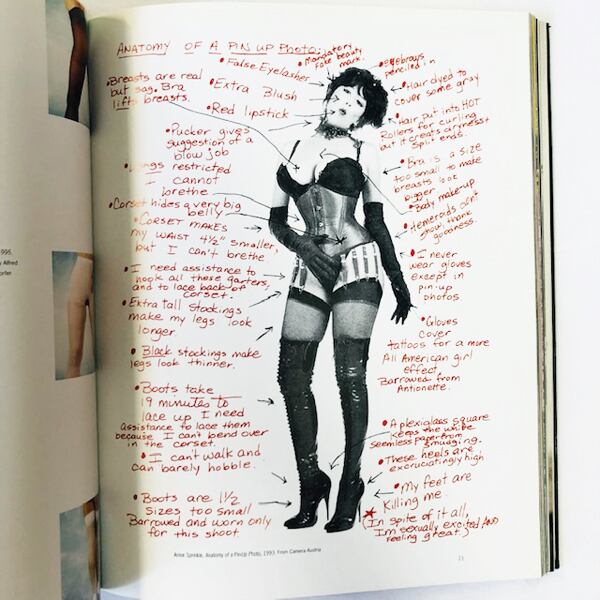 ANATOMY OF A PIN UP Photo:
• Mandatory
fake beauty
mark.
• False Eyelashes
• Extra Blush
• Red lipstick
• Breasts are real
but sag. Bra
lifts breasts.
• Pucker gives
suggestion of a
blow job
• Lungs restricted
I cannot
brethe
• Corset hides a very big
belly
• CORSET MAKES
my WAIST 4½" smaller,
but I can't brethe.
• I need assistance to
hook all these garters,
and to lace back of
corset.
• Extra tall stockings
make my legs look
longer.
• Black stockings make
legs look thinner.
• Boots take
19 minutes to
lace up I need
assistance to lace them
because I can't bend over
in the corset.
• I can't walk and
can barely hobble.
• Boots are 1½
sizes too small
Barrowed and worn only
for this shoot.
• eyebrows
penciled in
• Hair dyed to
cover some gray
• Hair put into HOT
Rollers for curling
but it creates dryness &
split ends.
• Bra is a size
too small to make
breasts look
bigger
• Body make-up
• Hemeroids don't
show, thank
goodness.
• I never
wear gloves
except in
pin-up
photos
• Gloves
cover
tattoos for a more
All American girl
effect.
Barrowed from
Antionette.
• A plexiglass square
keeps the white
seamless paper from
smudging.
• These heels are
excruciatingly high
• My feet are
killing me.
(In spite of it all,
I'm sexually excited AND
feeling great.)
Annie Sprinkle, Anatomy of a PinUp Photo, 1993. From Camera Austria
21
1995.
y Alfred
orter